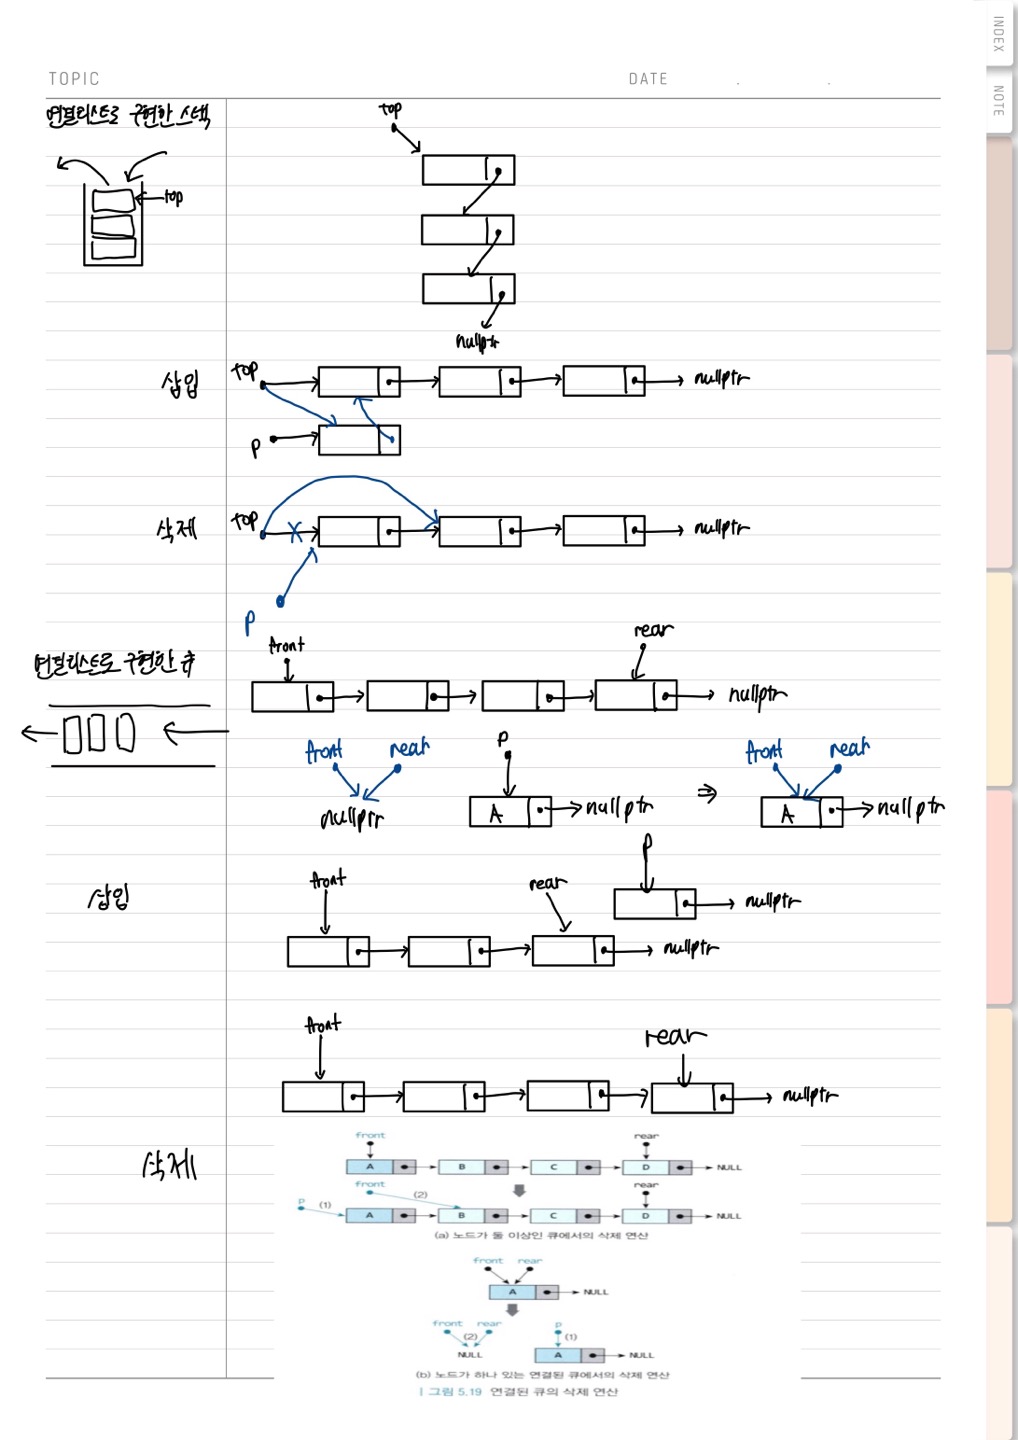 INDEX
NOTE
TOPIC
DATE . .
연결리스트로 구현한 스택
top
top
nullptr
삽입
top
nullptr
p
삭제
top
nullptr
p
연결리스트로 구현한 큐
front
rear
nullptr
front rear
nullptr
p
A
nullptr
⇒
front rear
A
nullptr
삽입
front
rear
p
nullptr
nullptr
front
rear
nullptr
삭제
front
rear
A B C D NULL
front
(2)
rear
p (1)
A B C D NULL
(a) 노드가 둘 이상인 큐에서의 삭제 연산
front rear
A NULL
front rear
(2)
NULL
p
(1)
A NULL
(b) 노드가 하나 있는 연결된 큐에서의 삭제 연산
| 그림 5.19 연결된 큐의 삭제 연산